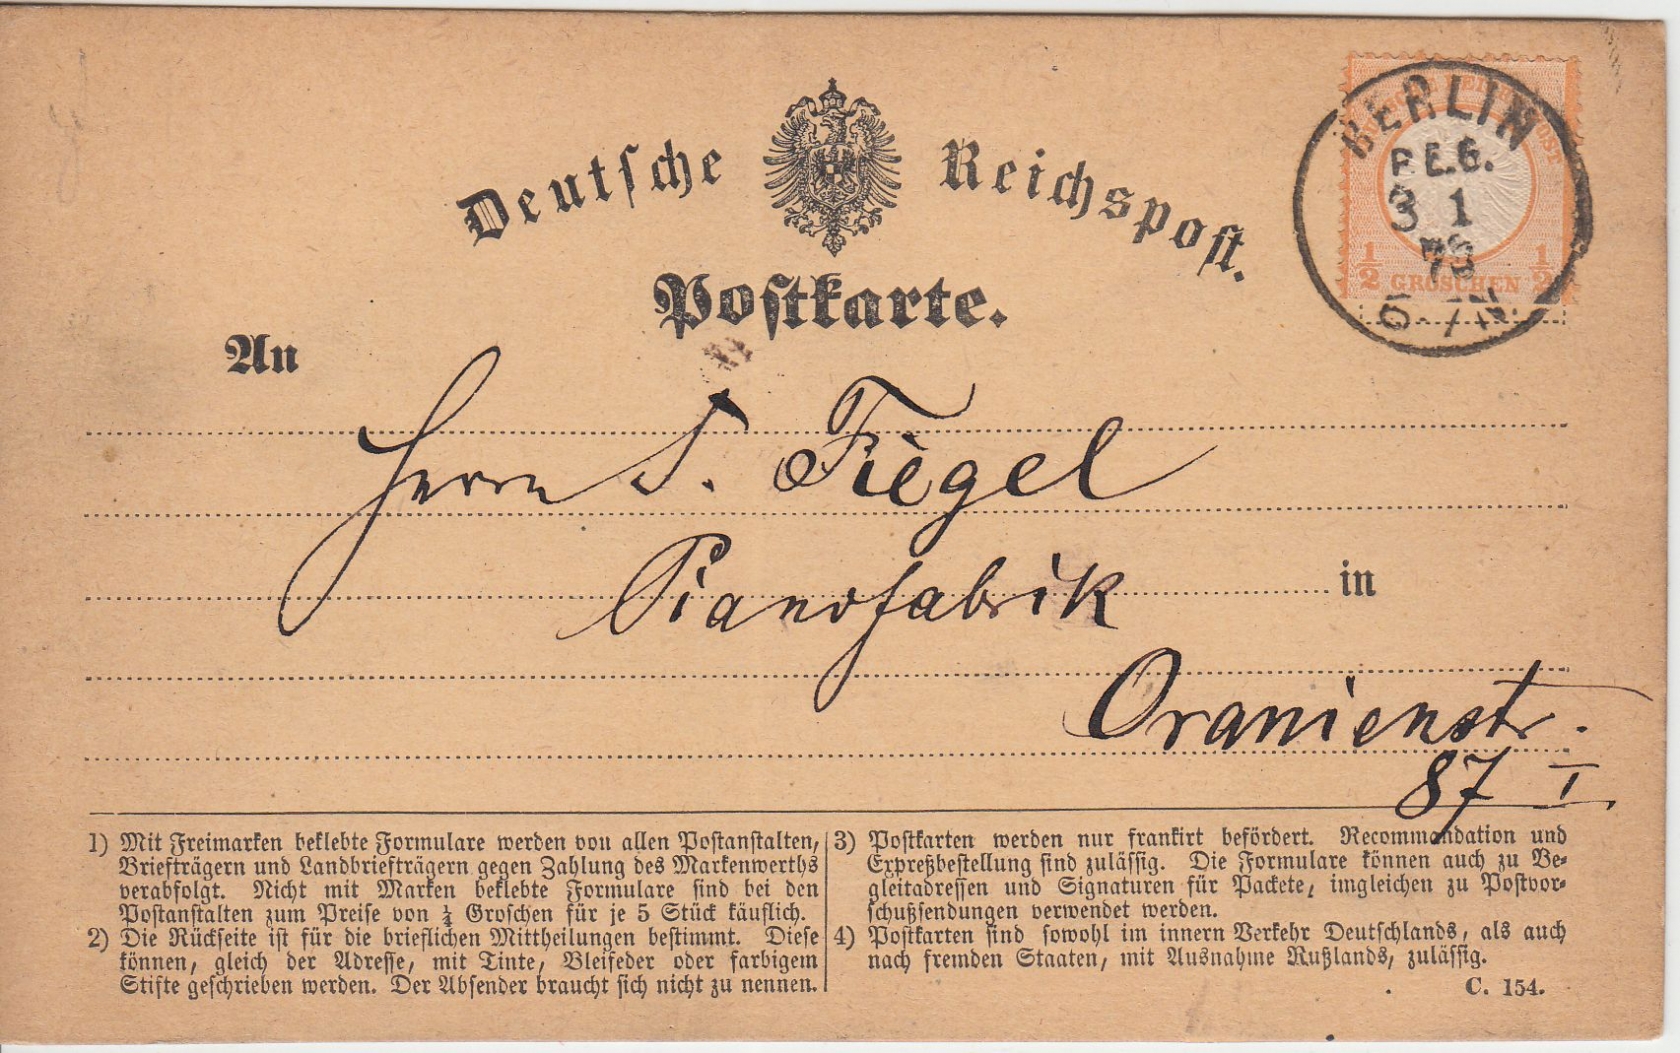 Deutsche Reichspost.
Postkarte.
BERLIN
P.E.6.
3 1
73
6-7N.
½ GROSCHEN ½
An
Herrn S. Fiegel
Pianofabrik
in
Oranienstr.
87 I
1) Mit Freimarken beklebte Formulare werden von allen Postanstalten,
Briefträgern und Landbriefträgern gegen Zahlung des Markenwerths
verabfolgt. Nicht mit Marken beklebte Formulare sind bei den
Postanstalten zum Preise von ¼ Groschen für je 5 Stück käuflich.
2) Die Rückseite ist für die brieflichen Mittheilungen bestimmt. Diese
können, gleich der Adresse, mit Tinte, Bleifeder oder farbigem
Stifte geschrieben werden. Der Absender braucht sich nicht zu nennen.
3) Postkarten werden nur frankirt befördert. Recommandation und
Expreßbestellung sind zulässig. Die Formulare können auch zu Be-
gleitadressen und Signaturen für Packete, imgleichen zu Postvor-
schußsendungen verwendet werden.
4) Postkarten sind sowohl im innern Verkehr Deutschlands, als auch
nach fremden Staaten, mit Ausnahme Rußlands, zulässig.
C. 154.